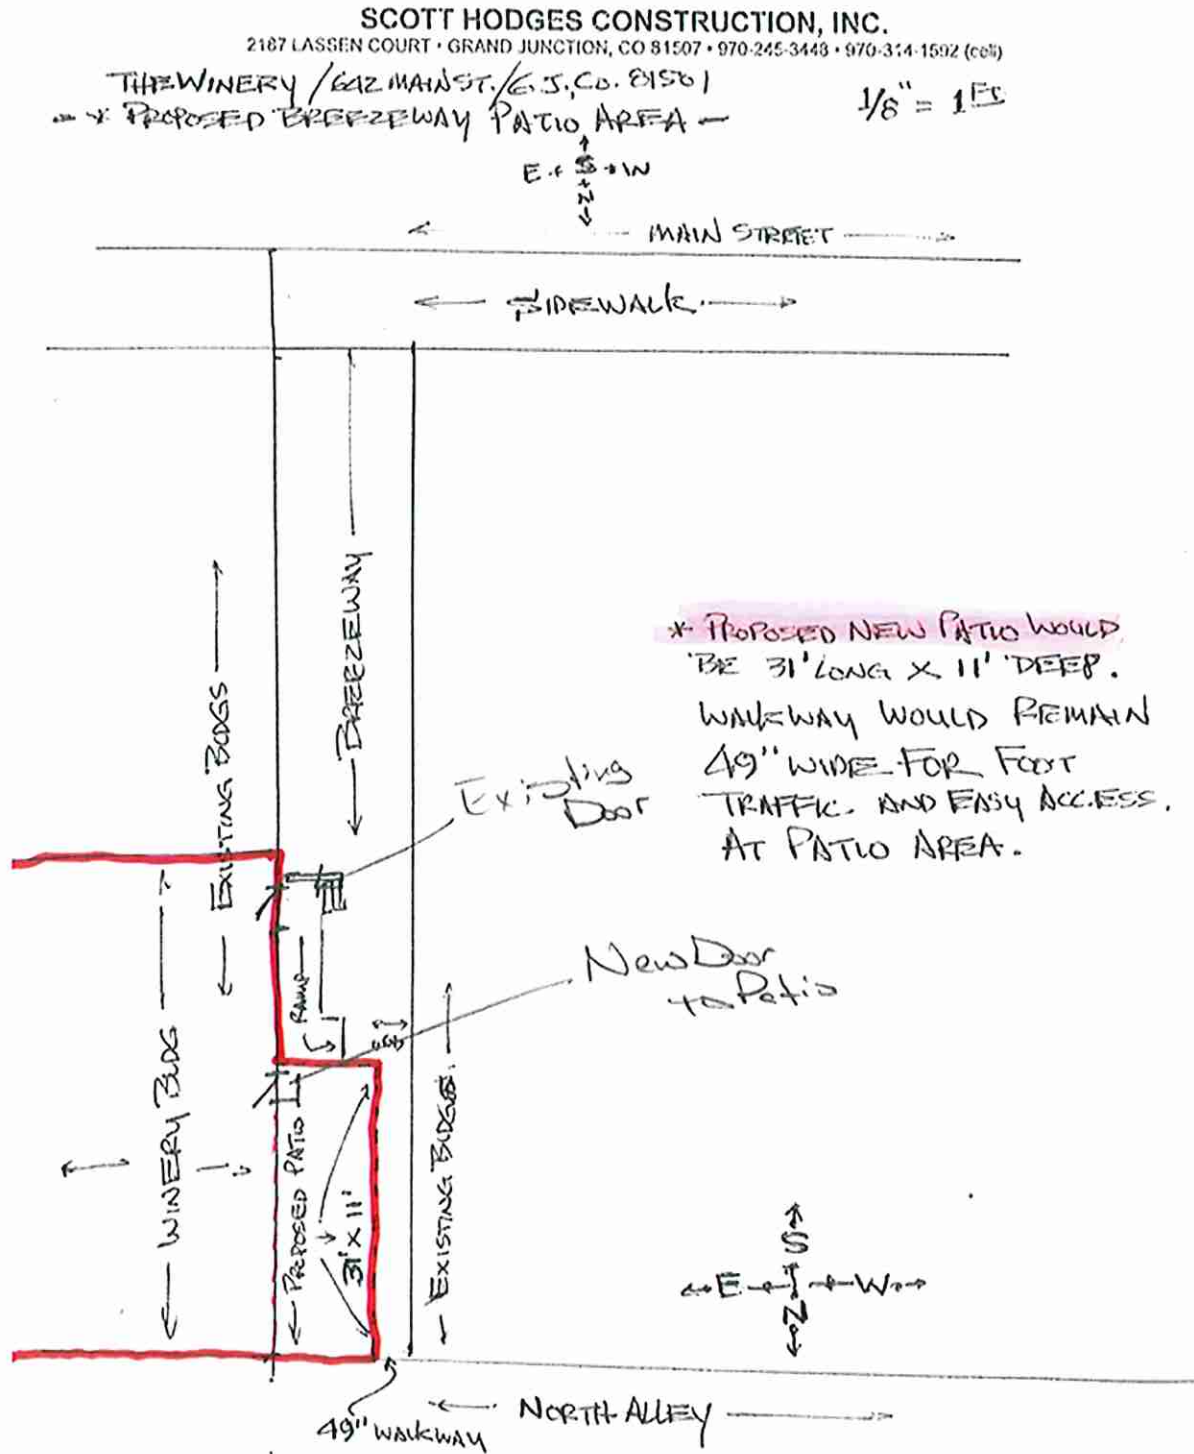 SCOTT HODGES CONSTRUCTION, INC.
2187 LASSEN COURT • GRAND JUNCTION, CO 81507 • 970-245-3448 • 970-314-1592 (cell)
THE WINERY / 642 MAIN ST. / G.J., CO. 81501
1/8" = 1 FT
* PROPOSED BREEZEWAY PATIO AREA
E S W
N
MAIN STREET
SIDEWALK
BREEZEWAY
EXISTING BLDGS
* PROPOSED NEW PATIO WOULD
BE 31' LONG X 11' DEEP.
WALKWAY WOULD REMAIN
49" WIDE FOR FOOT
TRAFFIC. AND EASY ACCESS.
AT PATIO AREA.
Existing
Door
New Door
to Patio
RAMP
WINERY BLDG
PROPOSED PATIO
31' X 11'
EXISTING BLDGS.
S
E W
N
NORTH ALLEY
49" WALKWAY